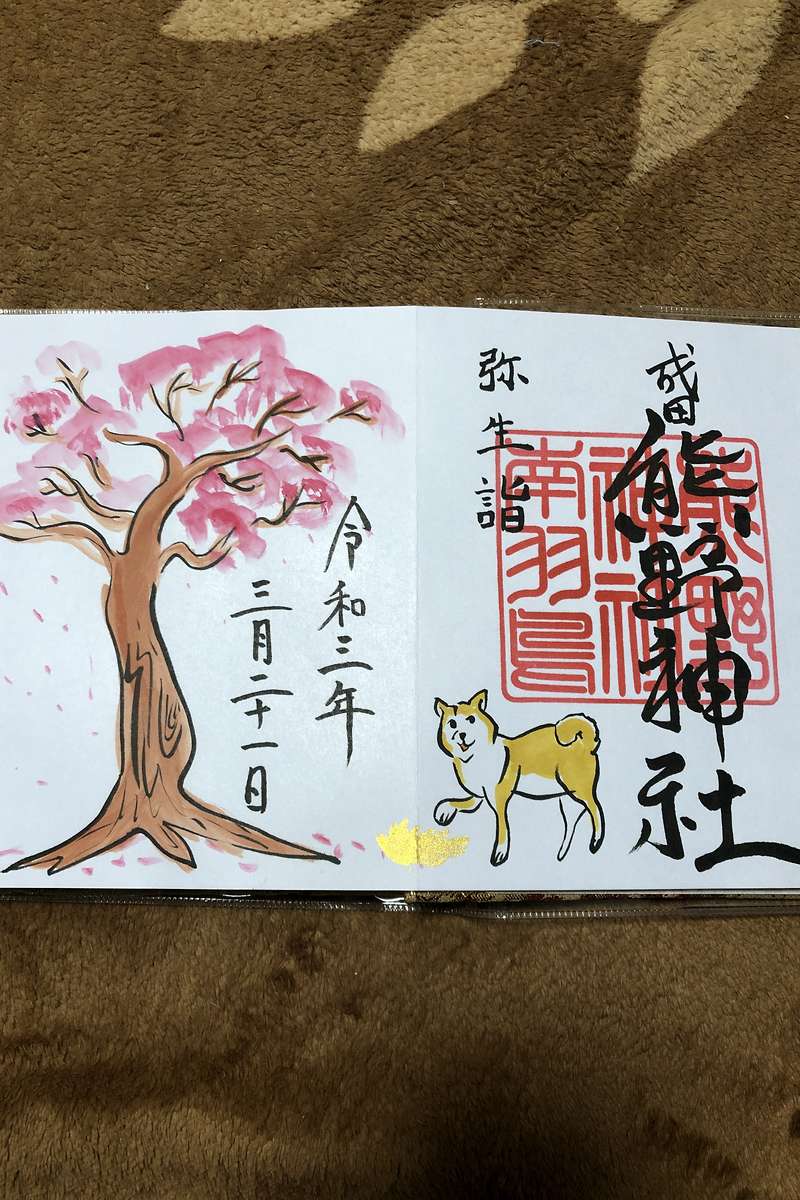 成田
熊野神社
熊野
神社
南羽鳥
弥生詣
令和三年
三月二十一日